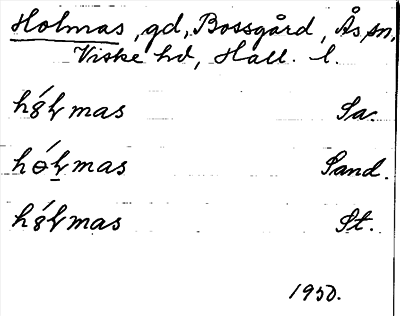 Holmas, gd, Bossgård, Ås sn,
Viske hd, Hall. l.
hɞ́ɫmas Sa.
hɵ́ɫmas Sand.
hɞ́ɫmas St.
1950.